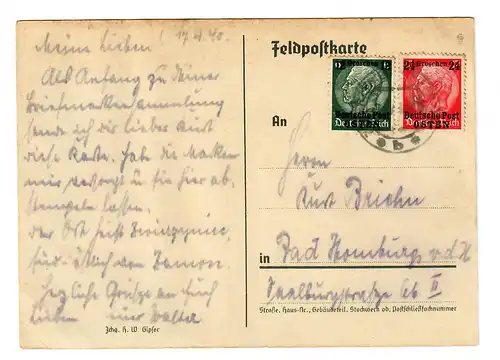 Meine Lieben! 17.4.40.
Als Anfang zu Deiner
Briefmarkensammlung
sende ich dir lieber Kurt
diese Karte. hab die Marken
mir besorgt u sie hier ab-
stempeln lassen.
der Ort heißt
von Zamosc.
Herzliche Grüße an Euch
Lieben euer Walter
Zchg. H. W. Gipfer
Feldpostkarte
12 Groschen 12
Deutsche Post
OSTEN
Deutsches Reich
24 Groschen 24
Deutsche Post
OSTEN
Deutsches Reich
b
An
Herrn
Kurt Briehn
in Bad Homburg v.d.H
Saalburgstraße 66 II
Straße, Haus-Nr., Gebäudeteil, Stockwerk od. Postschließfachnummer